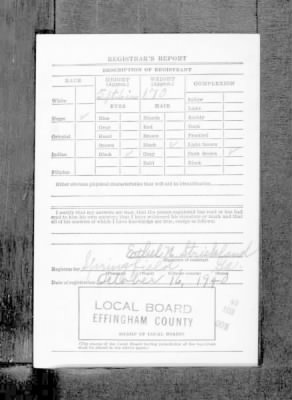 REGISTRAR'S REPORT
DESCRIPTION OF REGISTRANT
RACE HEIGHT (Approx.) WEIGHT (Approx.) COMPLEXION
White 170 Sallow
EYES HAIR Light
Negro ✓ Blue Blonde Ruddy
Gray Red Dark
Oriental Hazel Brown Freckled
Brown Black ✓ Light brown
Indian Black ✓ Gray Dark brown ✓
Bald Black
Filipino
Other obvious physical characteristics that will aid in identification
I certify that my answers are true; that the person registered has read or has had
read to him his own answers; that I have witnessed his signature or mark and that
all of his answers of which I have knowledge are true, except as follows:
Ethel H. Strickland
(Signature of registrar)
Registrar for Springfield Ga.
Date of registration October 16, 1940
LOCAL BOARD
EFFINGHAM COUNTY
(STAMP OF LOCAL BOARD)
(The stamp of the Local Board having jurisdiction of the registrant
shall be placed in the above space.)